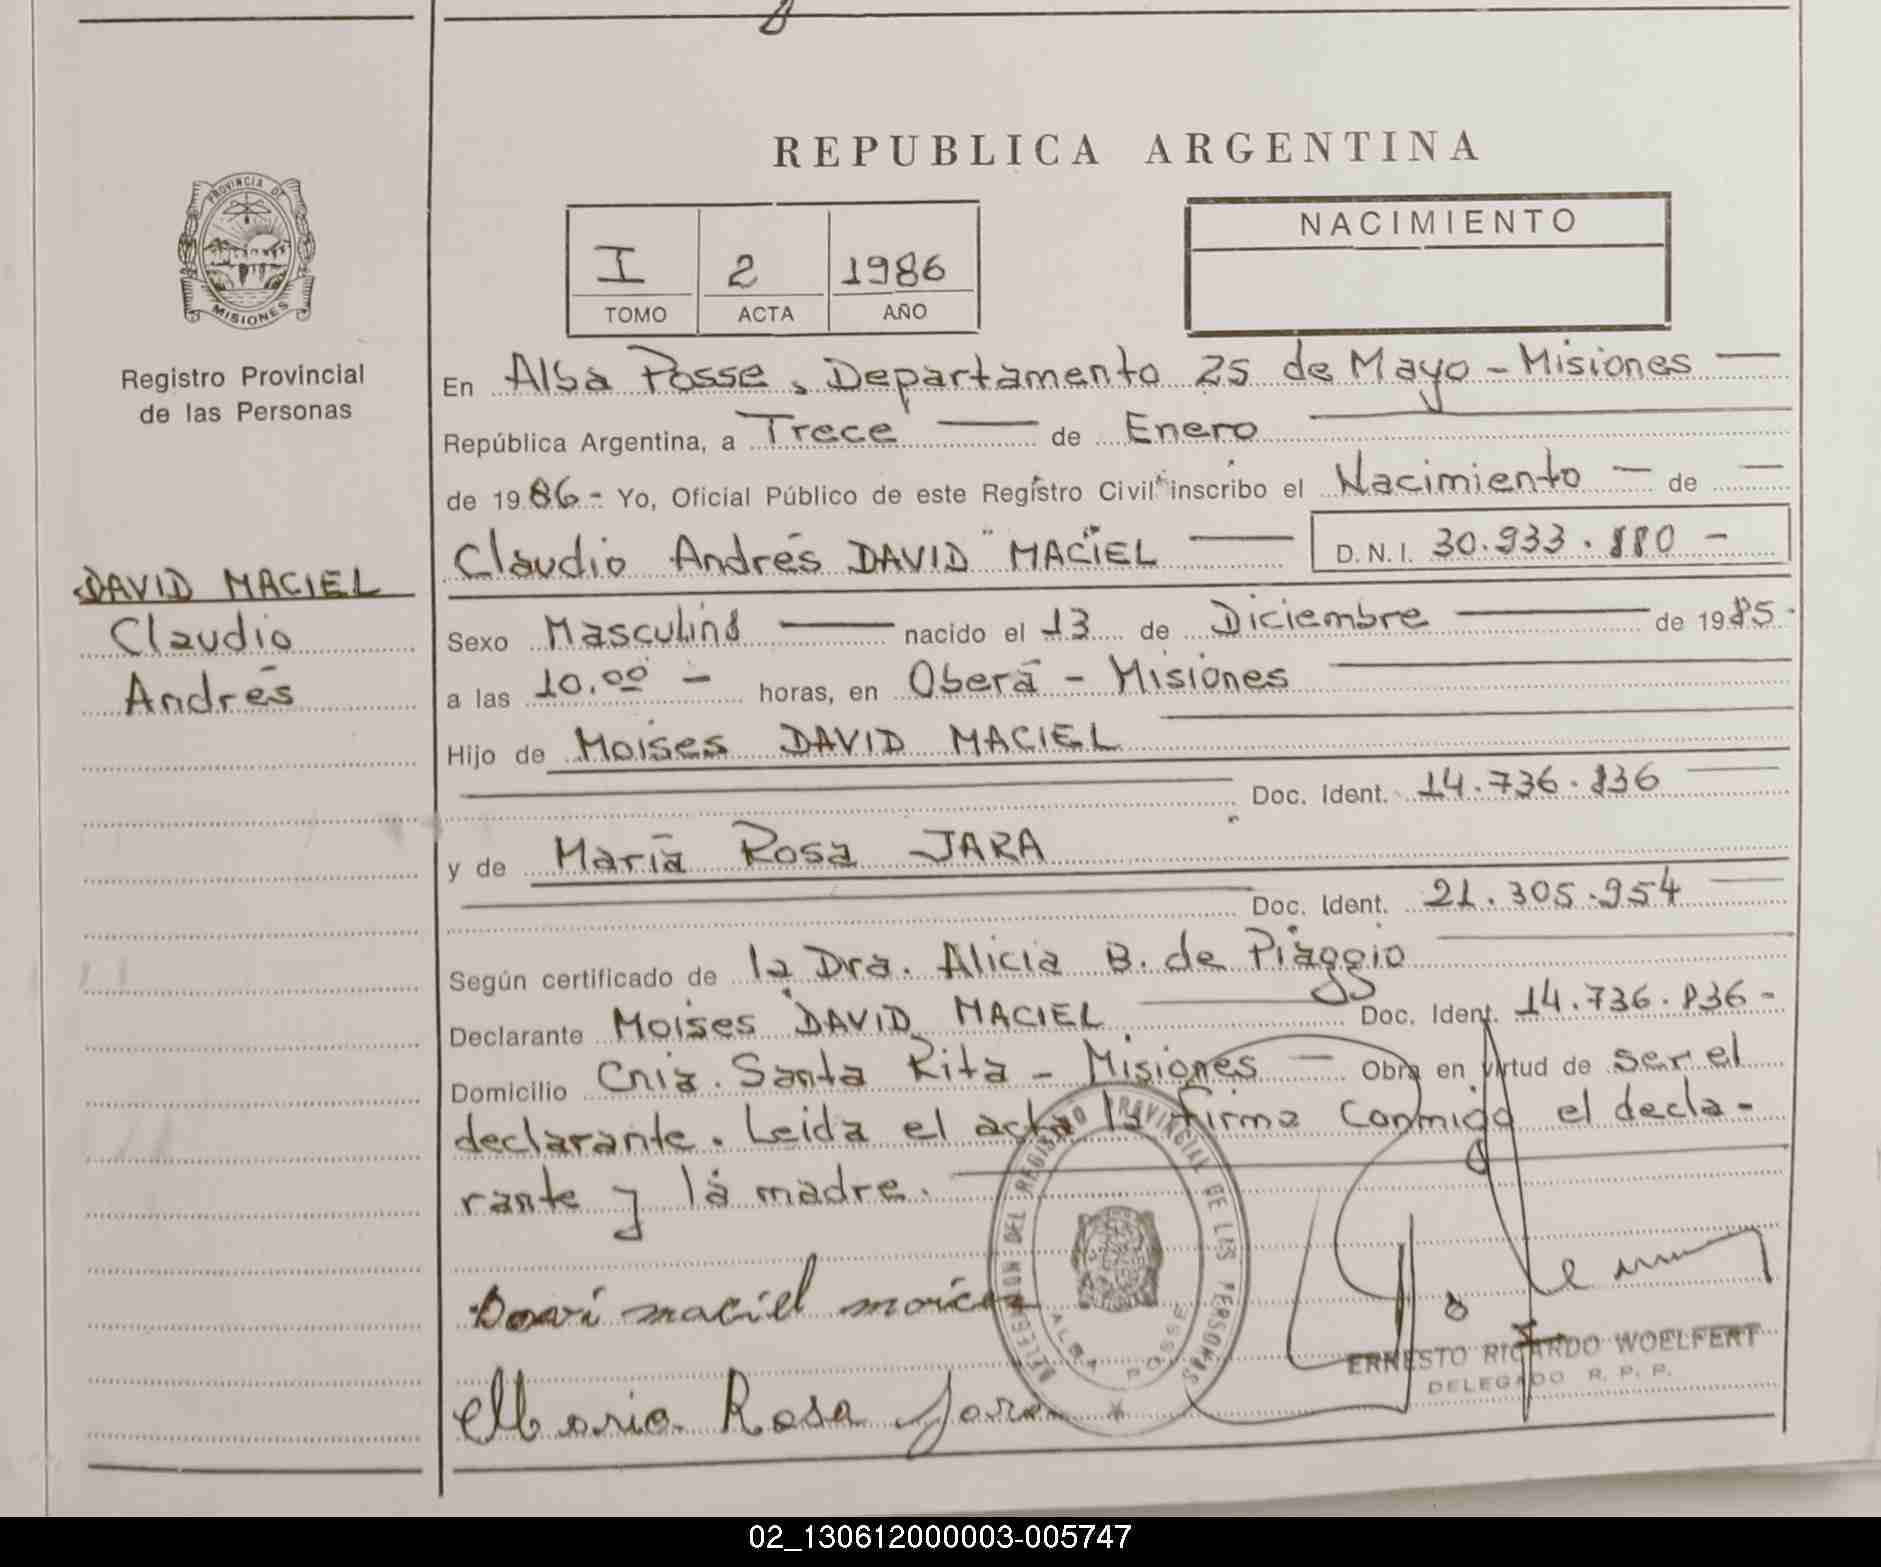 REPUBLICA ARGENTINA
PROVINCIA DE
MISIONES
Registro Provincial
de las Personas
DAVID MACIEL
Claudio
Andrés
I 2 1986
TOMO ACTA AÑO
NACIMIENTO
En Alba Posse, Departamento 25 de Mayo - Misiones —
República Argentina, a Trece — de Enero
de 1986.- Yo, Oficial Público de este Registro Civil inscribo el Nacimiento — de —
Claudio Andrés DAVID MACIEL — D.N.I. 30.933.880 -
Sexo Masculino — nacido el 13 de Diciembre — de 1985.
a las 10.00 - horas, en Oberá - Misiones
Hijo de Moises DAVID MACIEL
Doc. Ident. 14.736.836 —
y de María Rosa JARA
Doc. Ident. 21.305.954 —
Según certificado de la Dra. Alicia B. de Piaggio
Declarante Moises DAVID MACIEL — Doc. Ident. 14.736.836 -
Domicilio Cnia. Santa Rita - Misiones — Obra en virtud de ser el
declarante. Leida el acta la firma conmigo el decla-
rante y la madre.
DELEGACION DEL REGISTRO PROVINCIAL DE LAS PERSONAS
ALBA POSSE
maciel
Maria Rosa Jara
ERNESTO RICARDO WOELFERT
DELEGADO R. P. P.
02_130612000003-005747